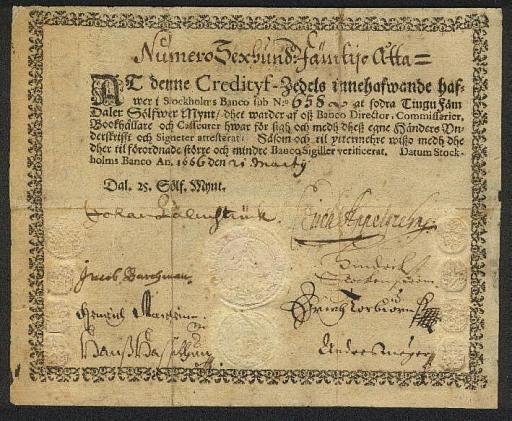 Numero Sexhund: Fämtijo Åtta=
AT denne Credityf-Zedels innehafwande haf-
wer i Stockholms Banco sub N:o 658 at fodra Tiugu Fäm
Daler Sölfwer Mynt/ dhet warder af oß Banco Director, Commissarier,
Bookhållare och Casseurer hwar för sigh och medh dheß egne Händers Un-
derskrift och Signeter attesterat: Såsom och til yttermehre wißo medh dhe
dher til förordnade större och mindre Banco Sigiller verificerat. Datum Stock-
holms Banco An. 1666 den 21 Martij
Dal. 25. Sölf. Mynt.
Johan Palmstruk.
Jacob Barchman
Hinderich
Andres